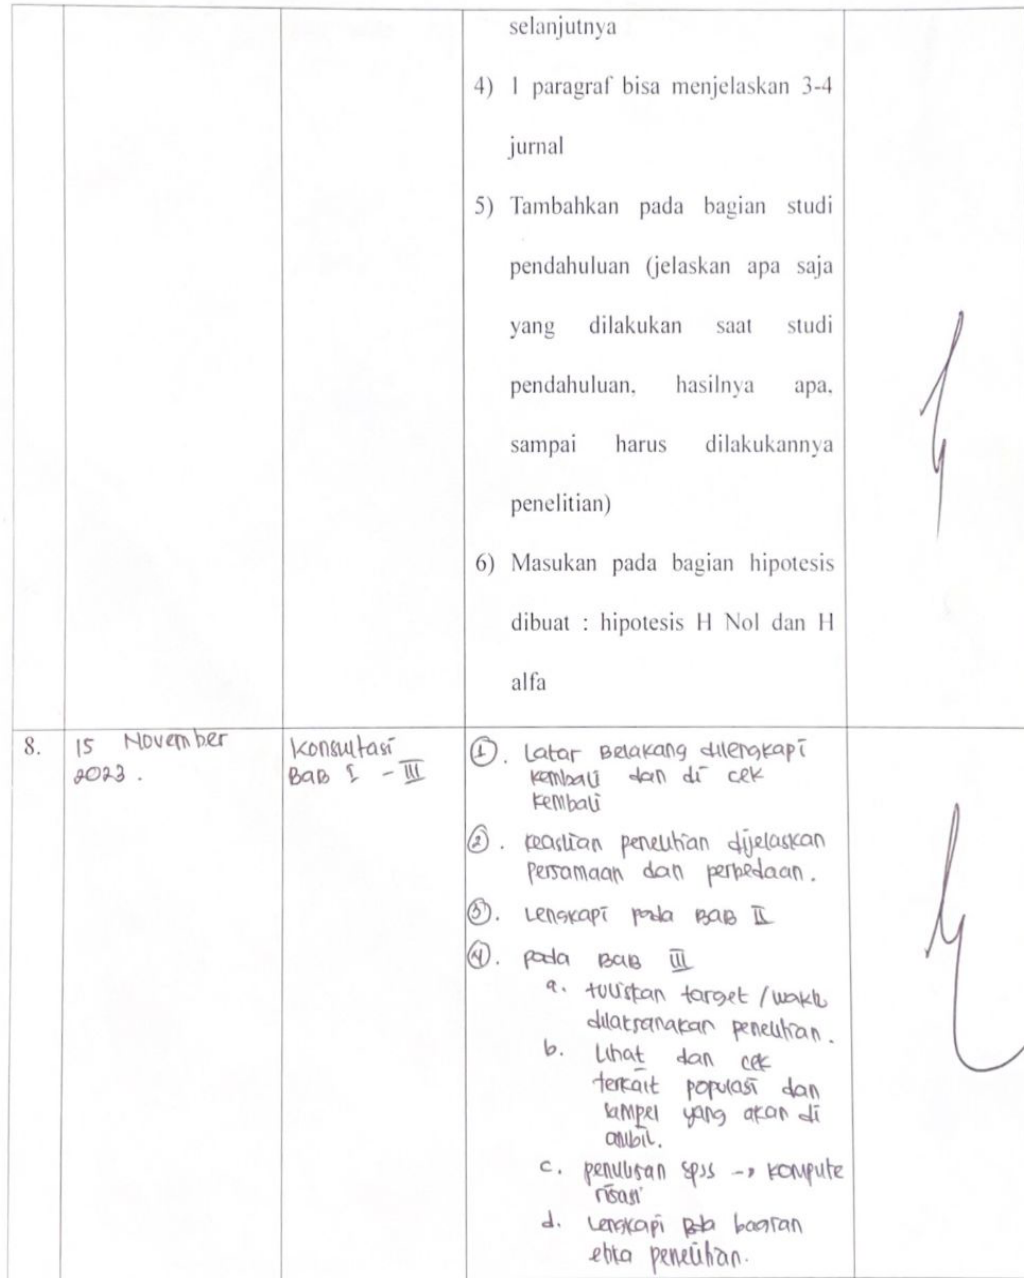 selanjutnya
4) 1 paragraf bisa menjelaskan 3-4
jurnal
5) Tambahkan pada bagian studi
pendahuluan (jelaskan apa saja
yang dilakukan saat studi
pendahuluan, hasilnya apa,
sampai harus dilakukannya
penelitian)
6) Masukan pada bagian hipotesis
dibuat : hipotesis H Nol dan H
alfa
8.
15 November
2023.
Konsultasi
BAB I - III
①. Latar Belakang dilengkapi
kembali dan di cek
kembali
②. keaslian penelitian dijelaskan
Persamaan dan perbedaan.
③. Lengkapi pada BAB II
④. pada BAB III
a. tuliskan target / waktu
dilaksanakan penelitian.
b. Lihat dan cek
terkait populasi dan
sampel yang akan di
ambil.
c. penulisan spss → kompute
risasi
d. Lengkapi pada bagian
etika penelitian.